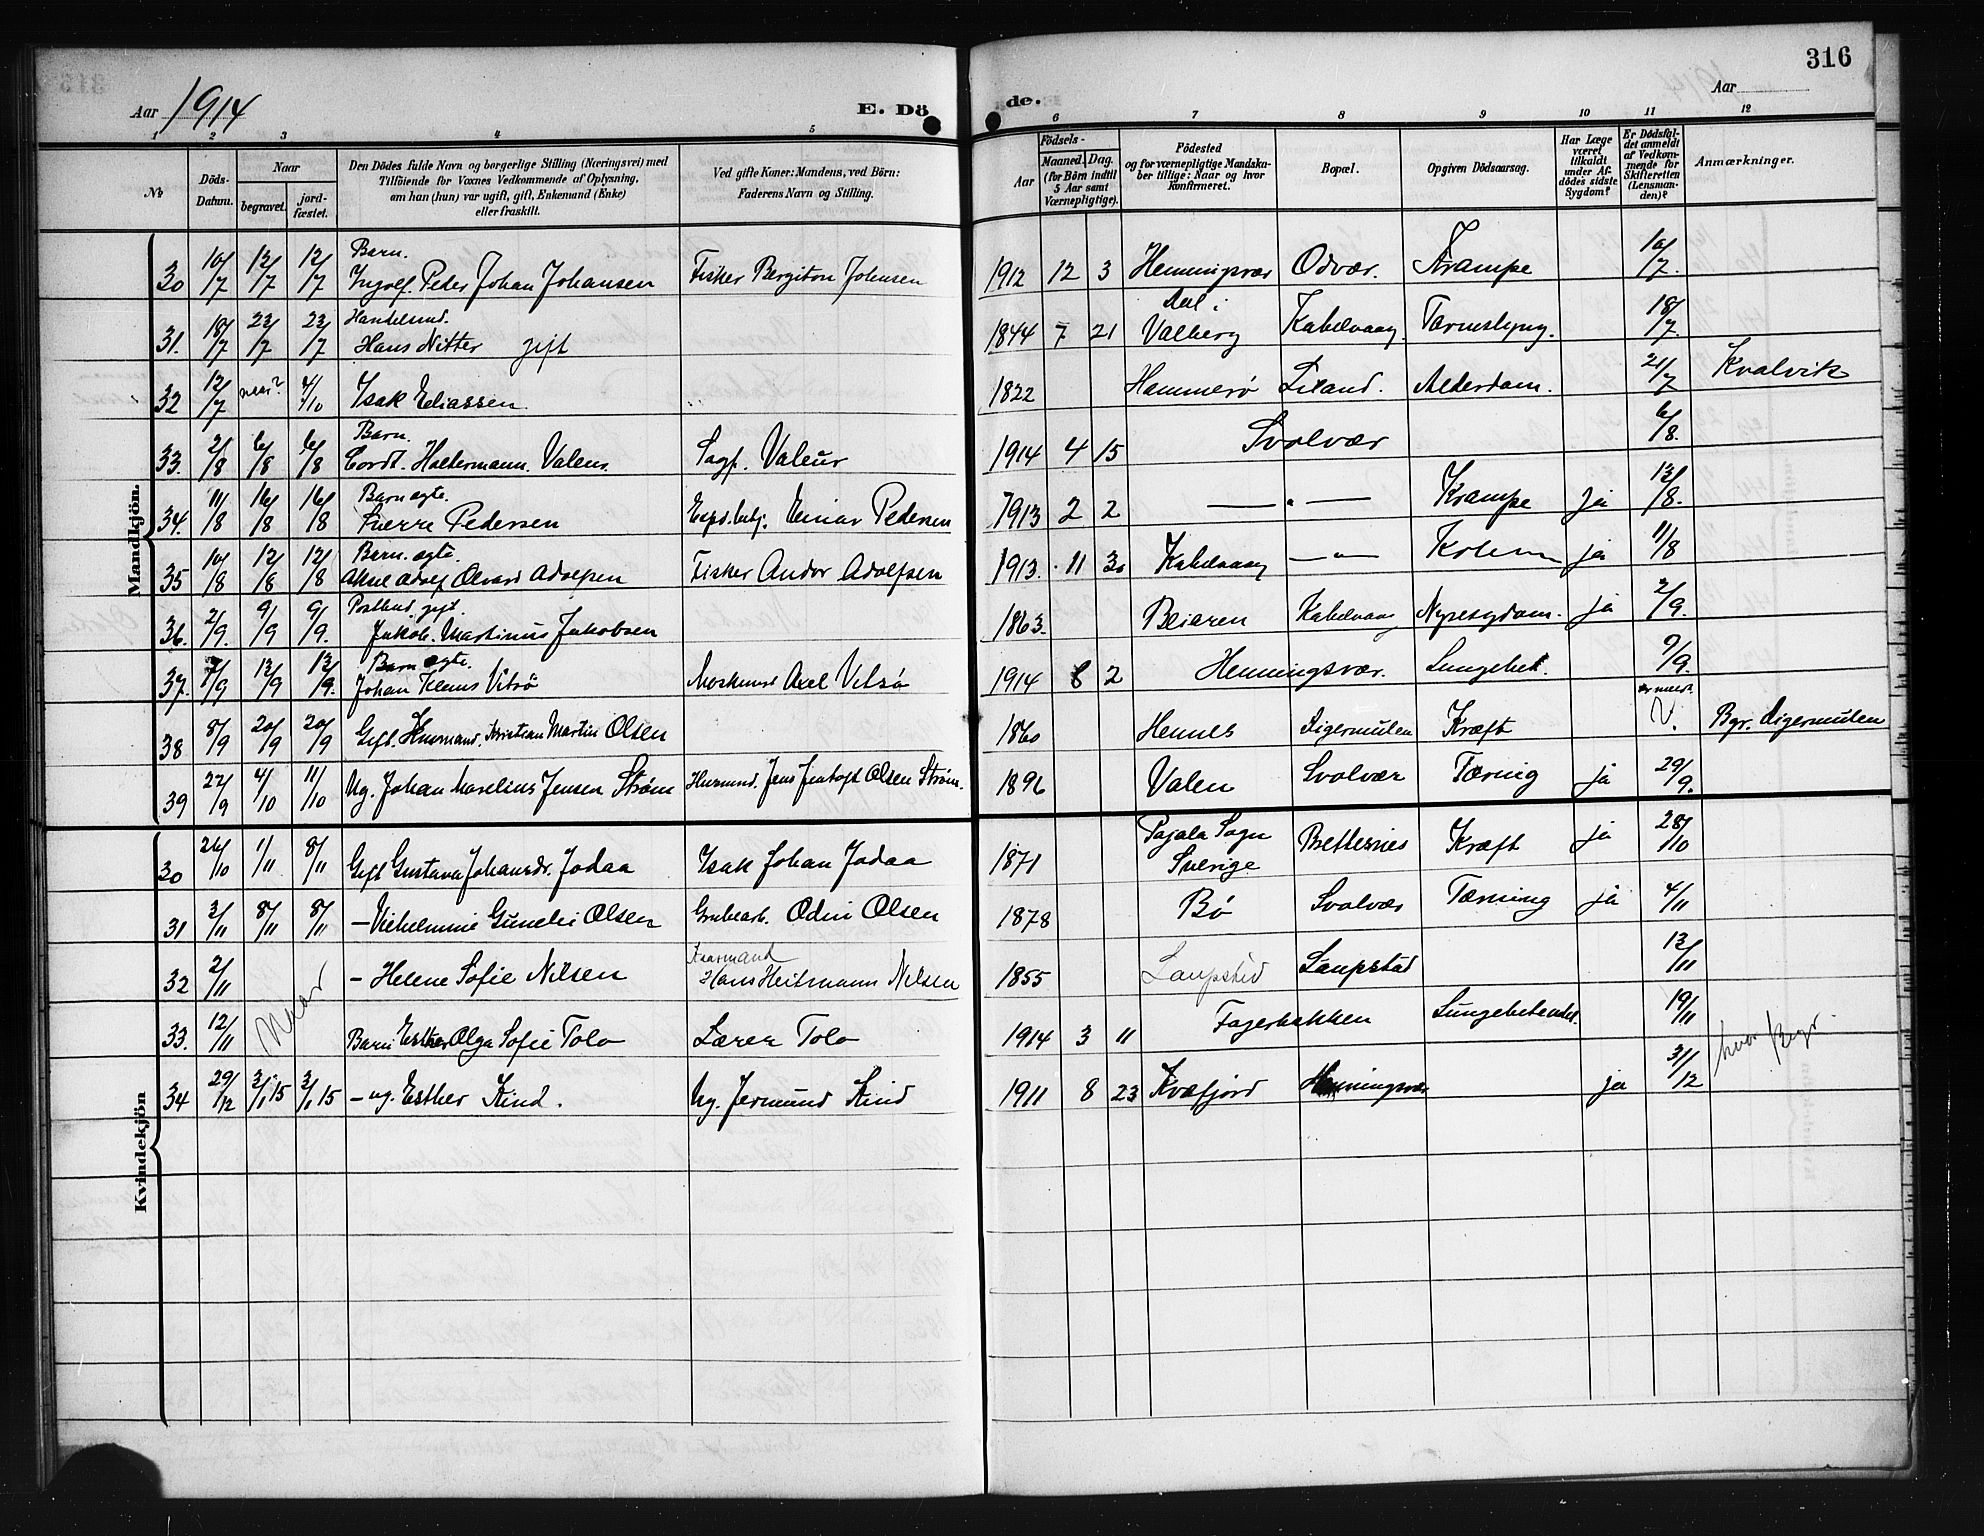 316
Aar 1914 E. Dö de. Aar
1 2 3 4 5 6 7 8 9 10 11 12
No
Döds-Datum.
Naar begravet. jordfæstet.
Den Dödes fulde Navn og borgerlige Stilling (Næringsvei) med Tilföiende for Voxnes Vedkommende af Oplysning, om han (hun) var ugift, gift, Enkemand (Enke) eller fraskilt.
Ved gifte Koner: Mandens, ved Börn: Faderens Navn og Stilling.
Födsels- Aar Maaned. Dag. (for Börn indtil 5 Aar samt Værnepligtige).
Födested og for værnepligtige Mandskaber tillige: Naar og hvor konfirmeret.
Bopæl.
Opgiven Dödsaarsag.
Har Læge været tilkaldt under Afdödes sidste Sygdom?
Er Dödsfaldet anmeldt af Vedkommende for Skifteretten (Lensmanden)?
Anmærkninger.
Mandkjön.
30 10/7 12/7 12/7 Barn. Ingolf Peder Johan Johansen Fisker Bergiton Johnsen 1912 12 3 Henningsvær Odvær. Krampe 10/7
31. 18/7 23/7 23/7 Handelsmd. Hans Nitter gift 1844 7 21 Valberg Kabelvaag 18/7.
32 12/7 naar? 4/10 Isak Eliassen 1822 Hammerø Alderdom. 21/7 Kvalvik
33. 2/8 6/8 6/8 Barn. Cordt. Holtermann. Valeur Sagf. Valeur 1914 4 15 Svolvær 6/8.
34. 11/8 16/8 16/8 Barn ægte. Sverre Pedersen Einar Pedersen 1913 2 2 — " — Krampe ja 13/8.
35 10/8 12/8 12/8 Barn. ægte. Adolf Adolfsen Fisker Andor Adolfsen 1913. 11 30 Kabelvaag — " — ja 11/8
36. 2/9. 9/9 9/9. Postbud. gift. Jakob. Martinus Jakobsen 1863. Beiaren Kabelvaag Nyresygdom. ja 2/9.
37. 7/9 13/9 13/9. Barn ægte. Johan Klems Vitsø Maskinist Axel Vitsø 1914 8 2 Henningsvær. Lungebet. 9/9.
38 8/9 20/9 20/9 Gift. Husmand. Kristian Martin Olsen 1860 Hennes Digermulen Kræft Bgr. Digermulen
39 22/9 4/10 11/10 Ug. Johan Marelius Jensen Strøm Husmand. Jens Jentoft Olsen Strøm. 1896 Valen Svolvær Tæring ja 29/9.
Kvindekjön
30 26/10 1/11 8/11 Gift Gustava Johansdr. Jodaa Isak Johan Jodaa 1871 Pajala Sogn Sverige Brettesnes Kræft ja 28/10
31 3/11 8/11 8/11 — Vilhelmine Olsen Grubearb. Odin Olsen 1878 Bø Svolvær Tæring ja 4/11
32 2/11 Naar — Helene Sofie Nilsen Kaarmand Hans Heitmann Nilsen 1855 Laupstad Laupstad 13/11
33. 12/11 Barn Esther Olga Sofie Tolo Lærer Tolo 1914 3 11 Fagerbakken 19/11 hvor Begr.
34 29/12 3/1 15 3/1 15 — ug. Esther Kind. Ug. Jermund Kind 1911 8 23 Kvæfjord Henningsvær ja 31/12